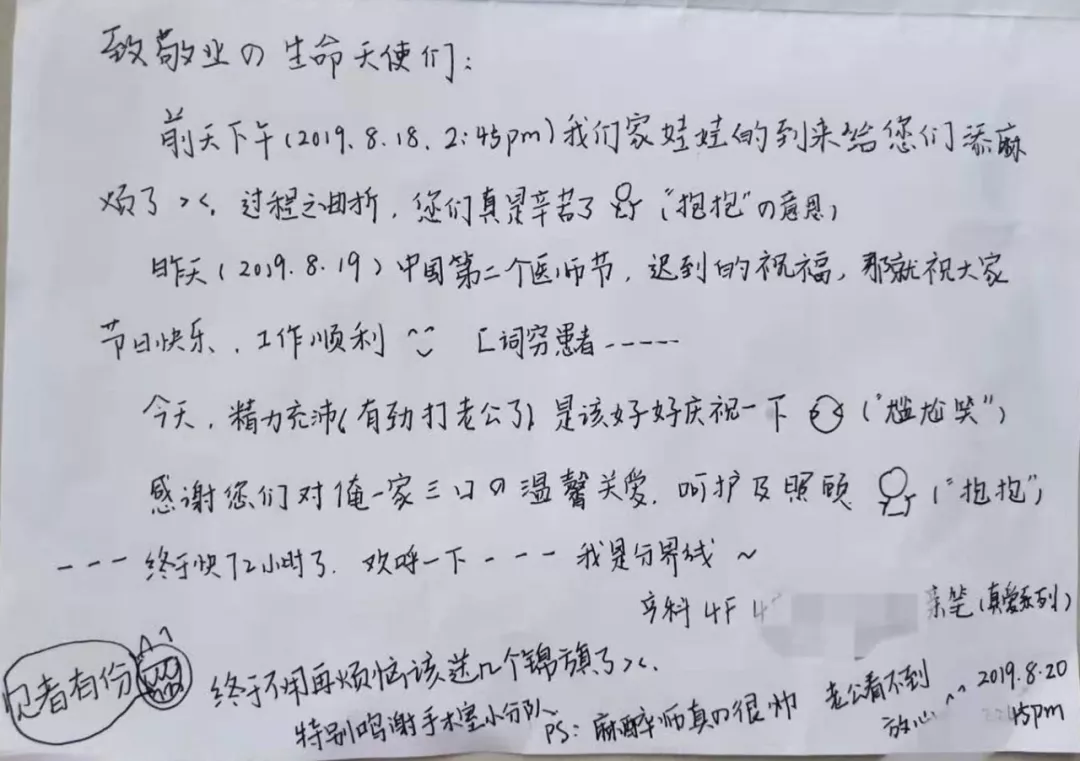 致敬业の生命天使们：
前天下午(2019.8.18.2:45pm)我们家娃娃的到来给您们添麻
烦了><。过程之曲折，您们真是辛苦了("抱抱"の意思)
昨天(2019.8.19)中国第二个医师节，迟到的祝福，那就祝大家
节日快乐、工作顺利 ^^ [词穷患者-----
今天，精力充沛(有劲打老公了)是该好好庆祝一下("尴尬笑")
感谢您们对俺一家三口の温馨关爱、呵护及照顾("抱抱")
---终于快72小时了，欢呼一下---我是分界线~
产科4F 4 亲笔(真爱系列)
见者有份
终于不用再烦恼该送几个锦旗了><.
特别鸣谢手术室小分队
PS：麻醉师真の很帅
老公看不到
放心^^
2019.8.20
2:45pm